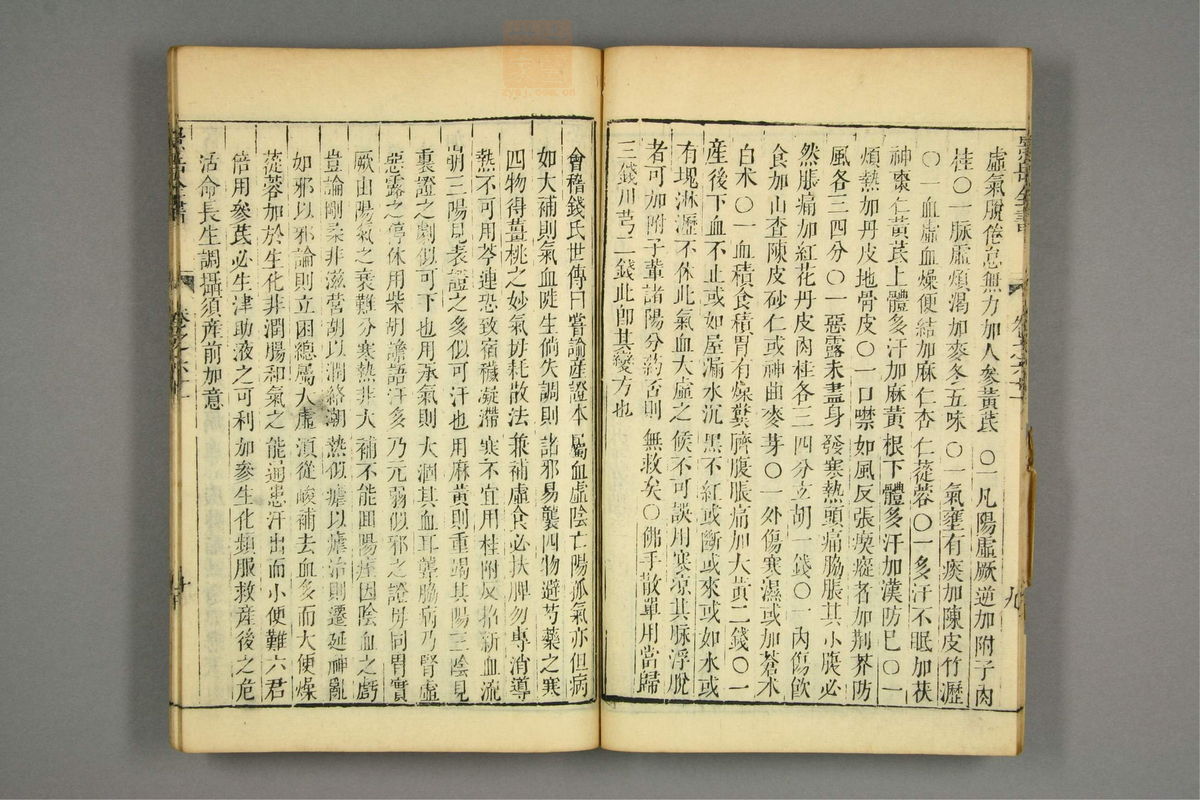 虛氣脫倦怠無力加人參黃芪　○一凡陽虛厥逆加附子肉
桂○一脉虛煩渴加麥冬五味　○一氣壅有痰加陳皮竹瀝
○一血虛血燥便結加麻仁杏仁蓯蓉○一多汗不眠加茯
神棗仁黃芪上體多汗加麻黃根下體多汗加漢防巳○一
煩熱加丹皮地骨皮○一口噤如風反張瘈瘲者加荆芥防
風各三四分○一惡露未盡身發寒熱頭痛脇脹其小腹必
然脹痛加紅花丹皮肉桂各三四分玄胡一錢○一內傷飲
食加山查陳皮砂仁或神曲麥芽○一外傷寒濕或加蒼术
白术○一血積食積胃有燥糞臍腹脹痛加大黃二錢○一
產後下血不止或如屋漏水沉黑不紅或斷或來或如水或
有塊淋瀝不休此氣血大虛之候不可誤用寒凉其脉浮脫
者可加附子輩諸陽分葯否則無救矣○佛手散單用當歸
三錢川芎二錢此卽其變方也
會稽錢氏世傳曰嘗論產證本屬血虛陰亡陽孤氣亦但病
如大補則氣血陡生倘失調則諸邪易襲四物避芍藥之寒
四物得薑桃之妙氣毋耗散法兼補虛食必扶脾勿專消導
熱不可用芩連恐致宿穢凝滯寒不宜用桂附反招新血流
崩三陽見表證之多似可汗也用麻黃則重竭其陽三陰見
裏證之劇似可下也用承氣則大涸其血耳聾脇病乃腎虛
惡露之停休用柴胡譫語汗多乃元弱似邪之證毋同胃實
厥由陽氣之衰難分寒熱非大補不能囬陽痙因陰血之虧
豈論剛柔非滋營胡以潤絡潮熱似瘧以瘧治則遷延神亂
如邪以邪論則立困總屬大虛湏從峻補去血多而大便燥
蓯蓉加於生化非潤腸和氣之能通患汗出而小便難六君
倍用參芪必生津助液之可利如參生化頻服救產後之危
活命長生調攝須產前加意